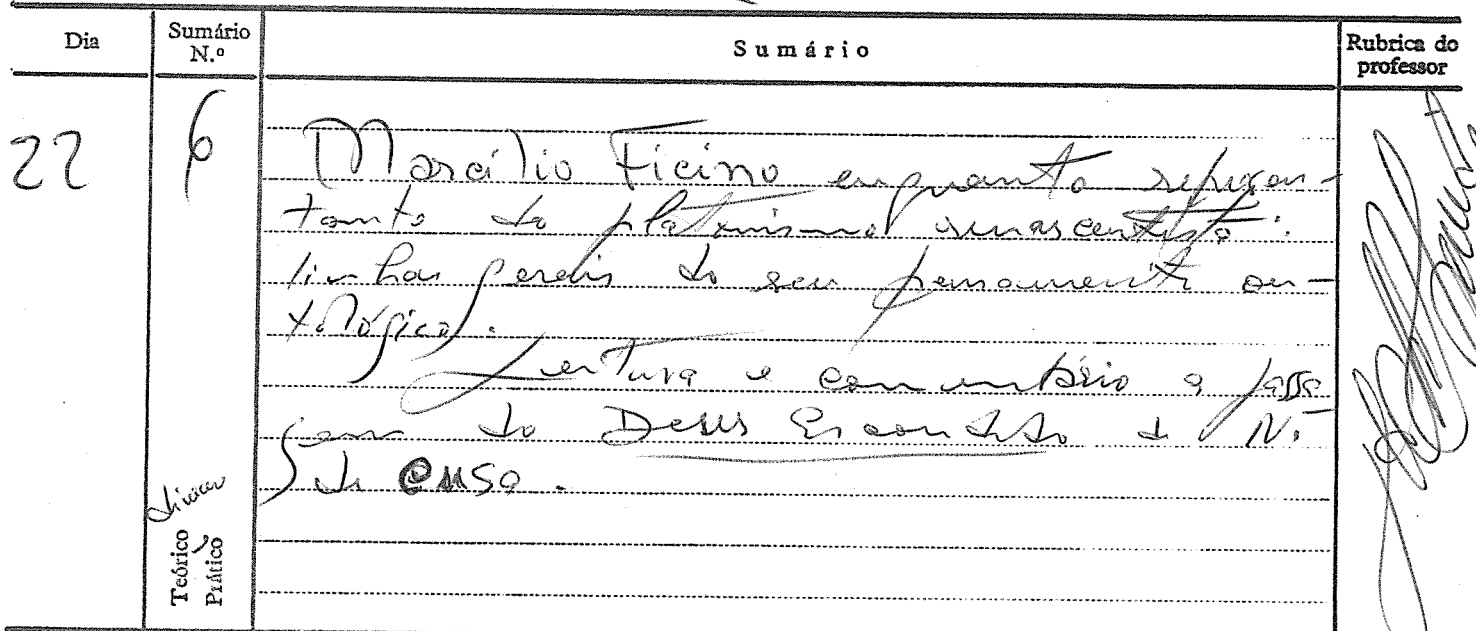 Dia
Sumário N.º
Sumário
Rubrica do professor
22
6
Marcílio Ficino enquanto represen-
tante do platonismo renascentista:
linhas gerais do seu pensamento on-
tológico.
Leitura e comentário a passa
gem do Deus Escondido de N.
de Cusa.
Teórico
Prático